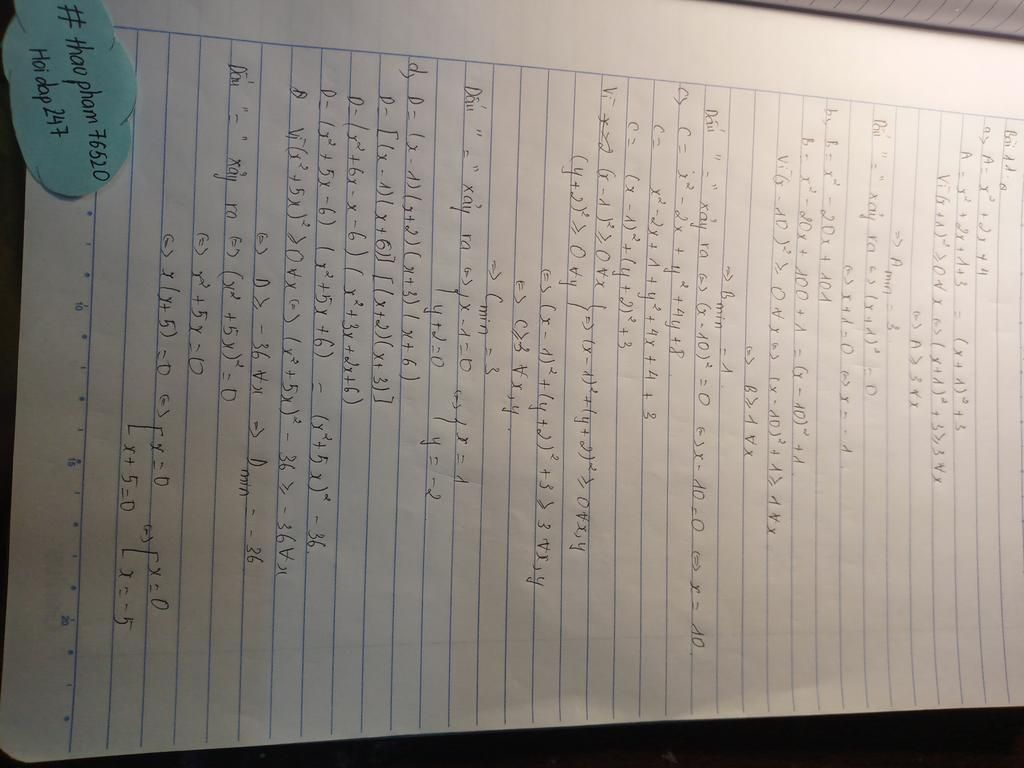 Bài 11:
a) A = x² + 2x + 4
A = x² + 2x + 1 + 3 = (x + 1)² + 3
Vì (x + 1)² ≥ 0 ∀x ⇔ (x + 1)² + 3 ≥ 3 ∀x
⇔ A ≥ 3 ∀x
⇒ Amin = 3
Dấu "=" xảy ra ⇔ (x + 1)² = 0
⇔ x + 1 = 0 ⇔ x = -1
b) B = x² - 20x + 101
B = x² - 20x + 100 + 1 = (x - 10)² + 1
Vì (x - 10)² ≥ 0 ∀x ⇔ (x - 10)² + 1 ≥ 1 ∀x
⇔ B ≥ 1 ∀x
⇒ Bmin = 1
Dấu "=" xảy ra ⇔ (x - 10)² = 0 ⇔ x - 10 = 0 ⇔ x = 10
c) C = x² - 2x + y² + 4y + 8
C = x² - 2x + 1 + y² + 4y + 4 + 3
C = (x - 1)² + (y + 2)² + 3
Vì (x - 1)² ≥ 0 ∀x } ⇔ (x - 1)² + (y + 2)² ≥ 0 ∀x,y
(y + 2)² ≥ 0 ∀y
⇔ (x - 1)² + (y + 2)² + 3 ≥ 3 ∀x,y
⇔ C ≥ 3 ∀x,y
⇒ Cmin = 3
Dấu "=" xảy ra ⇔ { x - 1 = 0 ⇔ { x = 1
y + 2 = 0 { y = -2
d) D = (x - 1)(x + 2)(x + 3)(x + 6)
D = [(x - 1)(x + 6)] [(x + 2)(x + 3)]
D = (x² + 6x - x - 6) (x² + 3x + 2x + 6)
D = (x² + 5x - 6) (x² + 5x + 6) = (x² + 5x)² - 36
Vì (x² + 5x)² ≥ 0 ∀x ⇔ (x² + 5x)² - 36 ≥ -36 ∀x
⇔ D ≥ -36 ∀x ⇒ Dmin = -36
Dấu "=" xảy ra ⇔ (x² + 5x)² = 0
⇔ x² + 5x = 0
⇔ x(x + 5) = 0 ⇔ [ x = 0 ⇔ [ x = 0
x + 5 = 0 [ x = -5
# thaopham76520
Hoidap247
10
15
20